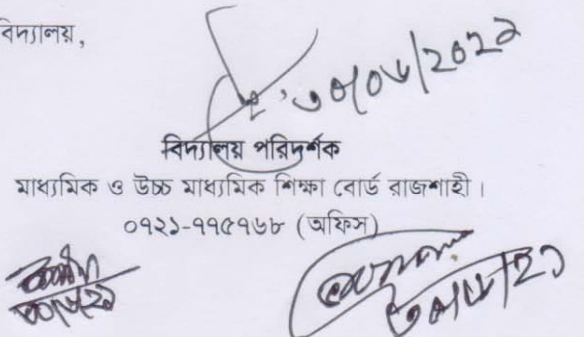 বিদ্যালয়,
৩০/০৬/২০২১
বিদ্যালয় পরিদর্শক
মাধ্যমিক ও উচ্চ মাধ্যমিক শিক্ষা বোর্ড রাজশাহী।
০৭২১-৭৭৫৭৬৮ (অফিস)
৩০/৬/২১
৩০/৬/২১